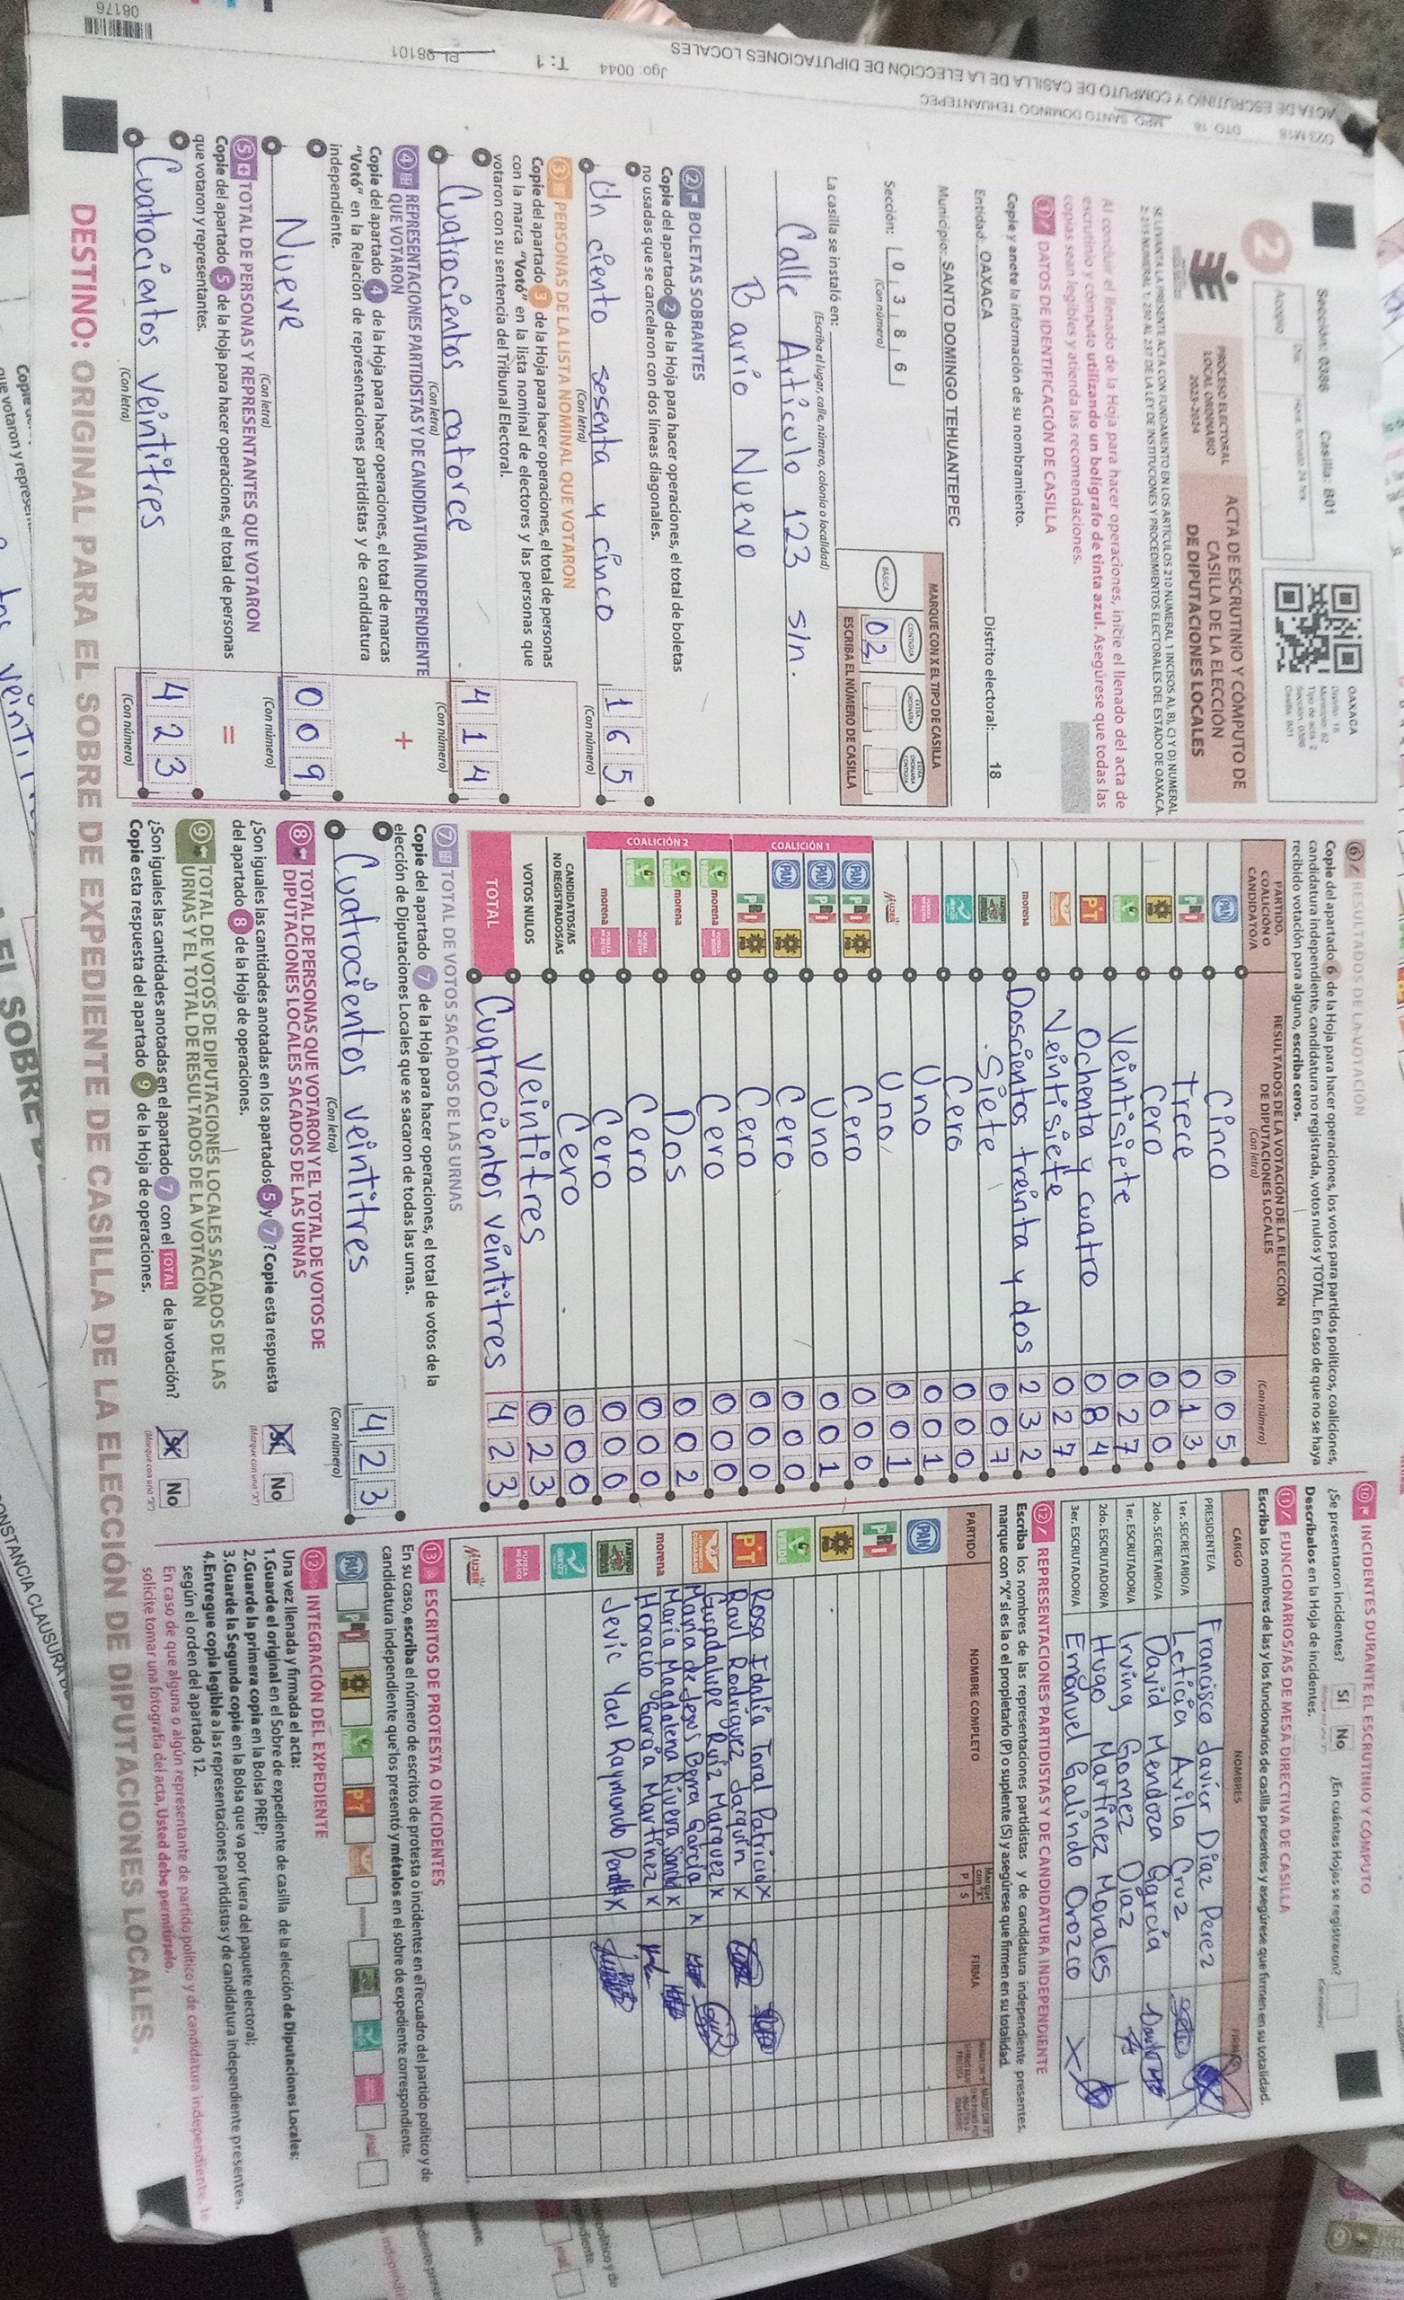 Sección: 0386 Casilla: B01
Acopio
OAXACA
Distrito: 18
Municipio: 82
Tipo de acta: 2
Sección: 0386
Casilla: B01
2
PROCESO ELECTORAL
LOCAL ORDINARIO
2023-2024
ACTA DE ESCRUTINIO Y CÓMPUTO DE
CASILLA DE LA ELECCIÓN
DE DIPUTACIONES LOCALES
SE LEVANTA LA PRESENTE ACTA CON FUNDAMENTO EN LOS ARTÍCULOS 210 NUMERAL 1 INCISOS A), B), C) Y D) NUMERAL
2; 215 NUMERAL 1; 230 AL 237 DE LA LEY DE INSTITUCIONES Y PROCEDIMIENTOS ELECTORALES DEL ESTADO DE OAXACA.
Al concluir el llenado de la Hoja para hacer operaciones, inicie el llenado del acta de
escrutinio y cómputo utilizando un bolígrafo de tinta azul. Asegúrese que todas las
copias sean legibles y atienda las recomendaciones.
1 DATOS DE IDENTIFICACIÓN DE CASILLA
Copie y anote la información de su nombramiento.
Entidad: OAXACA Distrito electoral: 18
Municipio: SANTO DOMINGO TEHUANTEPEC
Sección: 0 3 8 6
(Con número)
MARQUE CON X EL TIPO DE CASILLA
BÁSICA CONTIGUA EXTRA ORDINARIA EXTRA ORDINARIA CONTIGUA
02
ESCRIBA EL NÚMERO DE CASILLA
La casilla se instaló en:
(Escriba el lugar, calle, número, colonia o localidad)
Calle Artículo 123 s/n.
Barrio Nuevo
2 BOLETAS SOBRANTES
Copie del apartado 2 de la Hoja para hacer operaciones, el total de boletas
no usadas que se cancelaron con dos líneas diagonales.
Un ciento sesenta y cinco 1 6 5
(Con letra) (Con número)
3 PERSONAS DE LA LISTA NOMINAL QUE VOTARON
Copie del apartado 3 de la Hoja para hacer operaciones, el total de personas
con la marca "Votó" en la lista nominal de electores y las personas que
votaron con su sentencia del Tribunal Electoral.
Cuatrocientos catorce 4 1 4
(Con letra) (Con número)
4 REPRESENTACIONES PARTIDISTAS Y DE CANDIDATURA INDEPENDIENTE
QUE VOTARON
Copie del apartado 4 de la Hoja para hacer operaciones, el total de marcas
"Votó" en la Relación de representaciones partidistas y de candidatura
independiente.
+
Nueve 0 0 9
(Con letra) (Con número)
5 TOTAL DE PERSONAS Y REPRESENTANTES QUE VOTARON
Copie del apartado 5 de la Hoja para hacer operaciones, el total de personas
que votaron y representantes.
=
Cuatrocientos veintitres 4 2 3
(Con letra) (Con número)
6 RESULTADOS DE LA VOTACIÓN
Copie del apartado 6 de la Hoja para hacer operaciones, los votos para partidos políticos, coaliciones,
candidatura independiente, candidatura no registrada, votos nulos y TOTAL. En caso de que no se haya
recibido votación para alguno, escriba ceros.
PARTIDO, COALICIÓN O CANDIDATO/A
RESULTADOS DE LA VOTACIÓN DE LA ELECCIÓN DE DIPUTACIONES LOCALES
(Con letra) (Con número)
PAN Cinco 0 0 5
PRI Trece 0 1 3
PRD Cero 0 0 0
VERDE Veintisiete 0 2 7
PT Ochenta y cuatro 0 8 4
Veintisiete 0 2 7
morena Doscientos treinta y dos 2 3 2
Siete 0 0 7
Cero 0 0 0
Uno 0 0 1
MUJER Uno 0 0 1
COALICIÓN 1
PAN PRI PRD Cero 0 0 0
PAN PRI Uno 0 0 1
PAN PRD Cero 0 0 0
PRI PRD Cero 0 0 0
COALICIÓN 2
VERDE morena Cero 0 0 0
VERDE morena Dos 0 0 2
VERDE Cero 0 0 0
morena Cero 0 0 0
CANDIDATOS/AS NO REGISTRADOS/AS Cero 0 0 0
VOTOS NULOS Veintitres 0 2 3
TOTAL Cuatrocientos veintitres 4 2 3
7 TOTAL DE VOTOS SACADOS DE LAS URNAS
Copie del apartado 7 de la Hoja para hacer operaciones, el total de votos de la
elección de Diputaciones Locales que se sacaron de todas las urnas.
Cuatrocientos veintitres 4 2 3
(Con letra) (Con número)
8 TOTAL DE PERSONAS QUE VOTARON Y EL TOTAL DE VOTOS DE
DIPUTACIONES LOCALES SACADOS DE LAS URNAS
¿Son iguales las cantidades anotadas en los apartados 5 y 7? Copie esta respuesta
del apartado 8 de la Hoja de operaciones.
No
(Marque con una "X")
9 TOTAL DE VOTOS DE DIPUTACIONES LOCALES SACADOS DE LAS
URNAS Y EL TOTAL DE RESULTADOS DE LA VOTACIÓN
¿Son iguales las cantidades anotadas en el apartado 7 con el TOTAL de la votación?
Copie esta respuesta del apartado 9 de la Hoja de operaciones.
No
(Marque con una "X")
10 INCIDENTES DURANTE EL ESCRUTINIO Y CÓMPUTO
¿Se presentaron incidentes? Sí No ¿En cuántas Hojas se registraron?
Descríbalos en la Hoja de incidentes.
11 FUNCIONARIOS/AS DE MESA DIRECTIVA DE CASILLA
Escriba los nombres de las y los funcionarios de casilla presentes y asegúrese que firmen en su totalidad.
CARGO NOMBRES FIRMA
PRESIDENTE/A Francisco Javier Díaz Perez
1er. SECRETARIO/A Leticia Avila Cruz
2do. SECRETARIO/A David Mendoza García
1er. ESCRUTADOR/A Irving Gomez Díaz
2do. ESCRUTADOR/A Hugo Martínez Morales
3er. ESCRUTADOR/A Emanuel Galindo Orozco X
12 REPRESENTACIONES PARTIDISTAS Y DE CANDIDATURA INDEPENDIENTE
Escriba los nombres de las representaciones partidistas y de candidatura independiente presentes,
marque con "X" si es la o el propietario (P) o suplente (S) y asegúrese que firmen en su totalidad.
PARTIDO NOMBRE COMPLETO P S FIRMA
PAN
PRI
PRD
VERDE Rosa Idalia Toral Patricio X
PT Raul Rodríguez Jarquín X
Guadalupe Ruiz Marquez X
María de Jesus Berra García X
morena María Magdalena Rivera X
Horacio García Martínez X
Jevic Yael Raymundo X
MUJER
13 ESCRITOS DE PROTESTA O INCIDENTES
En su caso, escriba el número de escritos de protesta o incidentes en el recuadro del partido político y de
candidatura independiente que los presentó y métalos en el sobre de expediente correspondiente.
12 INTEGRACIÓN DEL EXPEDIENTE
Una vez llenada y firmada el acta:
1.Guarde el original en el Sobre de expediente de casilla de la elección de Diputaciones Locales;
2.Guarde la primera copia en la Bolsa PREP;
3.Guarde la Segunda copia en la Bolsa que va por fuera del paquete electoral;
4.Entregue copia legible a las representaciones partidistas y de candidatura independiente presentes,
según el orden del apartado 12.
En caso de que alguna o algún representante de partido político y de candidatura independiente, le
solicite tomar una fotografía del acta, Usted debe permitírselo.
DESTINO: ORIGINAL PARA EL SOBRE DE EXPEDIENTE DE CASILLA DE LA ELECCIÓN DE DIPUTACIONES LOCALES.
023 M18 DTO. 18 MPO. SANTO DOMINGO TEHUANTEPEC
ACTA DE ESCRUTINIO Y CÓMPUTO DE CASILLA DE LA ELECCIÓN DE DIPUTACIONES LOCALES
Jgo: 0044 T: 1 98101
08176
que votaron y
EL SOBRE
CONSTANCIA CLAUSURA